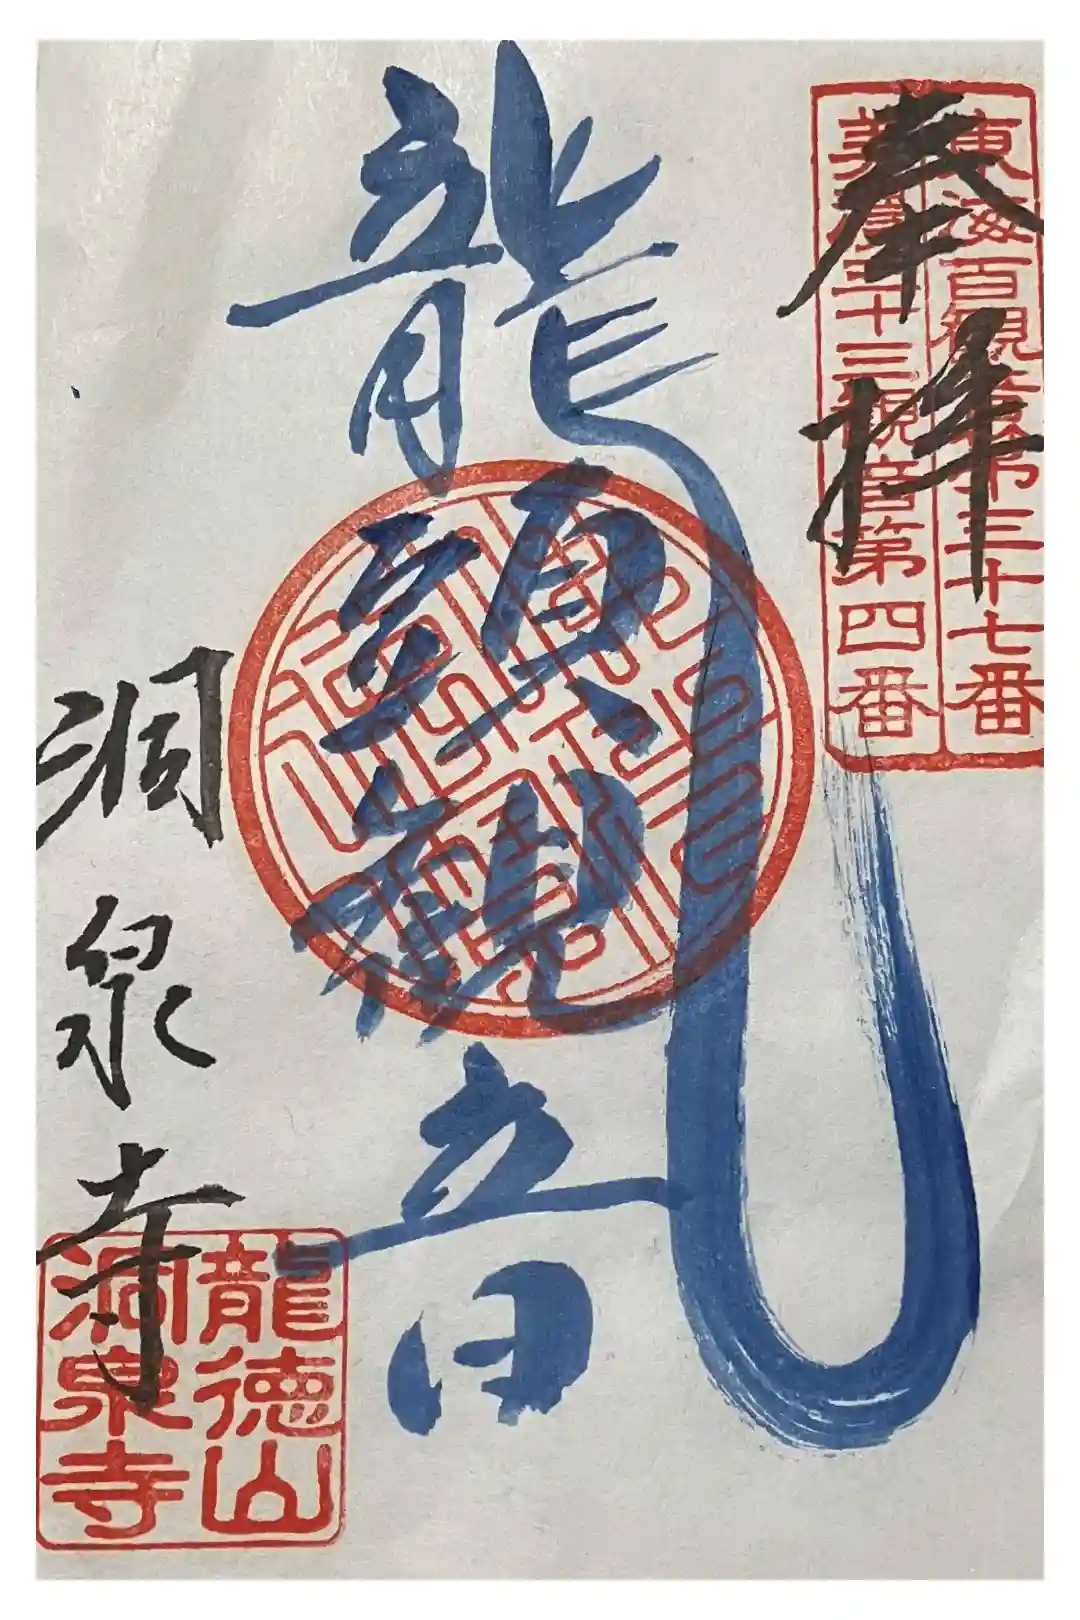 奉拝
東海百観音第三十七番
美濃三十三観音第四番
龍頭観音
洞泉寺
龍徳山
洞泉寺